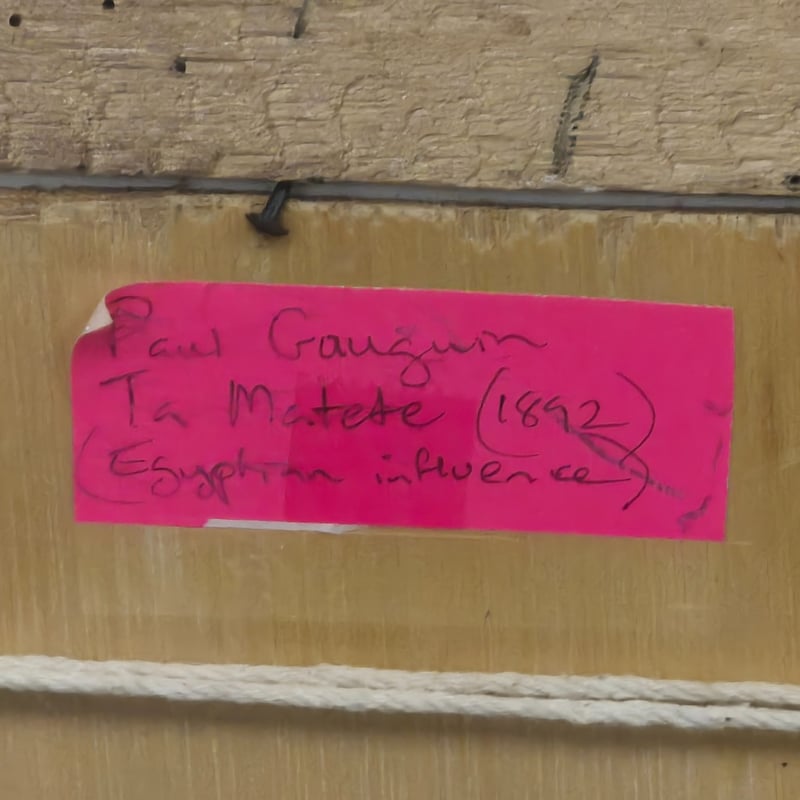 Paul Gauguin
Ta Matete (1892)
(Egyptian influence)